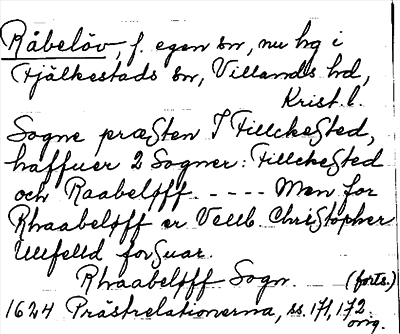 Råbelöv, f. egen sn, nu hg i
Fjälkestads sn, Villands hd,
Krist. l.
Sogne præsten I Fillckested,
haffuer 2 Sogner: Fillckested
och Raabeløff. ---- Men for
Rhaabeløff er Vellb. Christopher
Ulfelld forsuar.
Rhaabeløff Sogn. (forts.)
1624 Prästrelationerna, ss. 171, 172
orig.